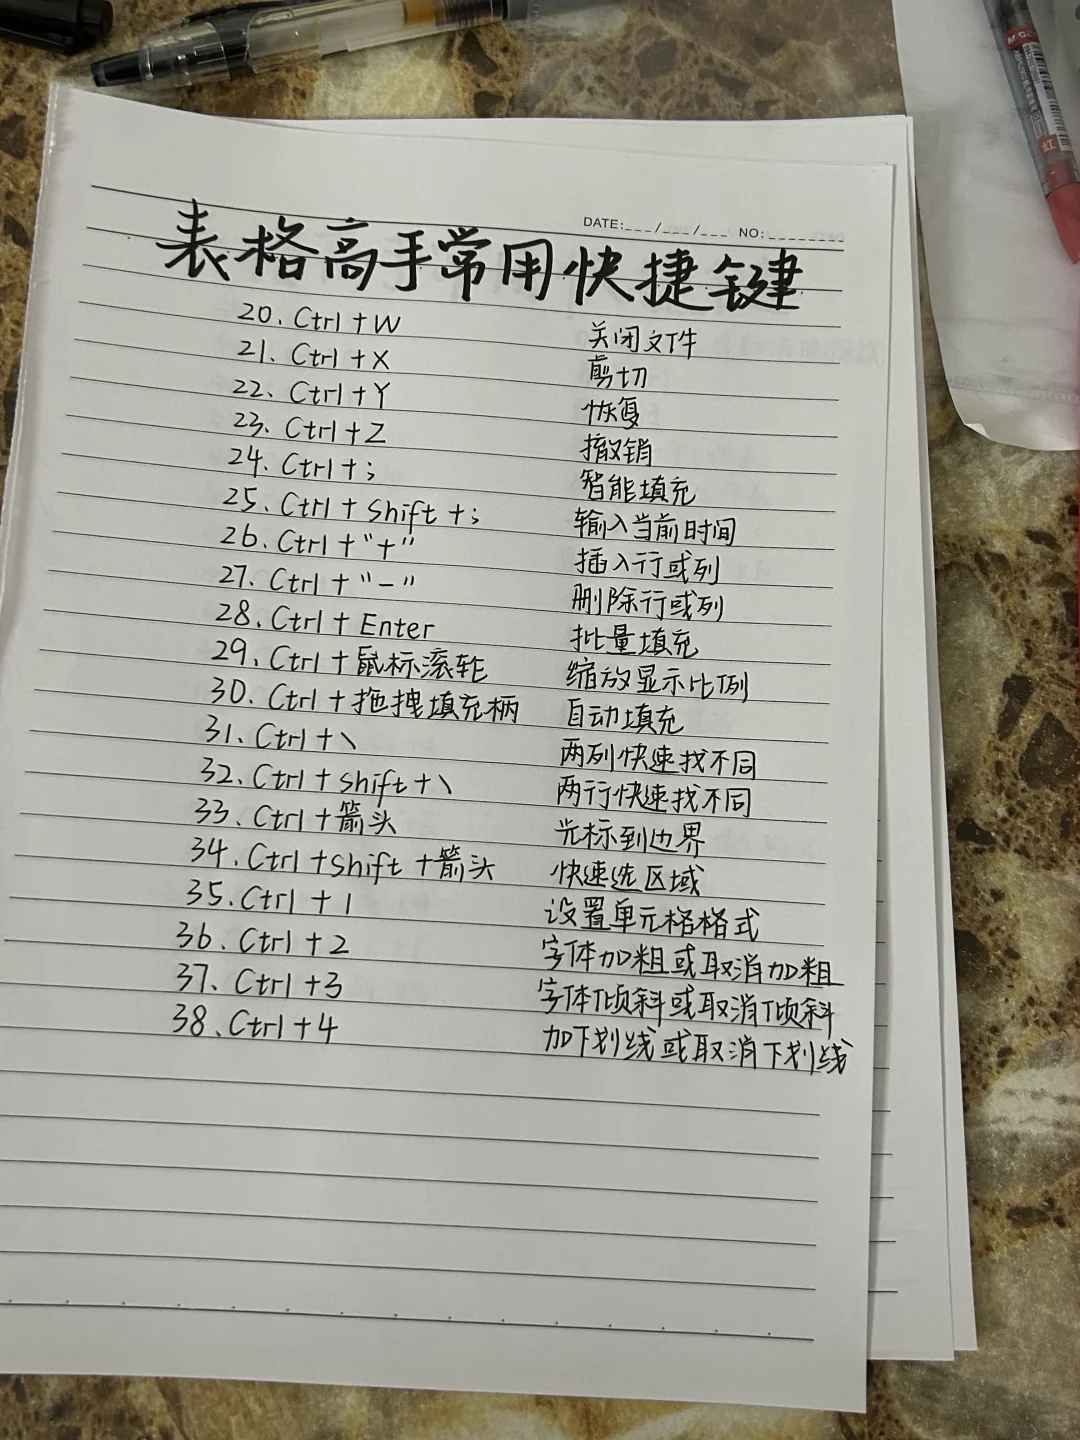 DATE:___/___/___ NO:________
表格高手常用快捷键
20、Ctrl+W 关闭文件
21、Ctrl+X 剪切
22、Ctrl+Y 恢复
23、Ctrl+Z 撤销
24、Ctrl+; 智能填充
25、Ctrl+Shift+; 输入当前时间
26、Ctrl+"+" 插入行或列
27、Ctrl+"-" 删除行或列
28、Ctrl+Enter 批量填充
29、Ctrl+鼠标滚轮 缩放显示比例
30、Ctrl+拖拽填充柄 自动填充
31、Ctrl+\ 两列快速找不同
32、Ctrl+Shift+\ 两行快速找不同
33、Ctrl+箭头 光标到边界
34、Ctrl+Shift+箭头 快速选区域
35、Ctrl+1 设置单元格格式
36、Ctrl+2 字体加粗或取消加粗
37、Ctrl+3 字体倾斜或取消倾斜
38、Ctrl+4 加下划线或取消下划线
M&G
红